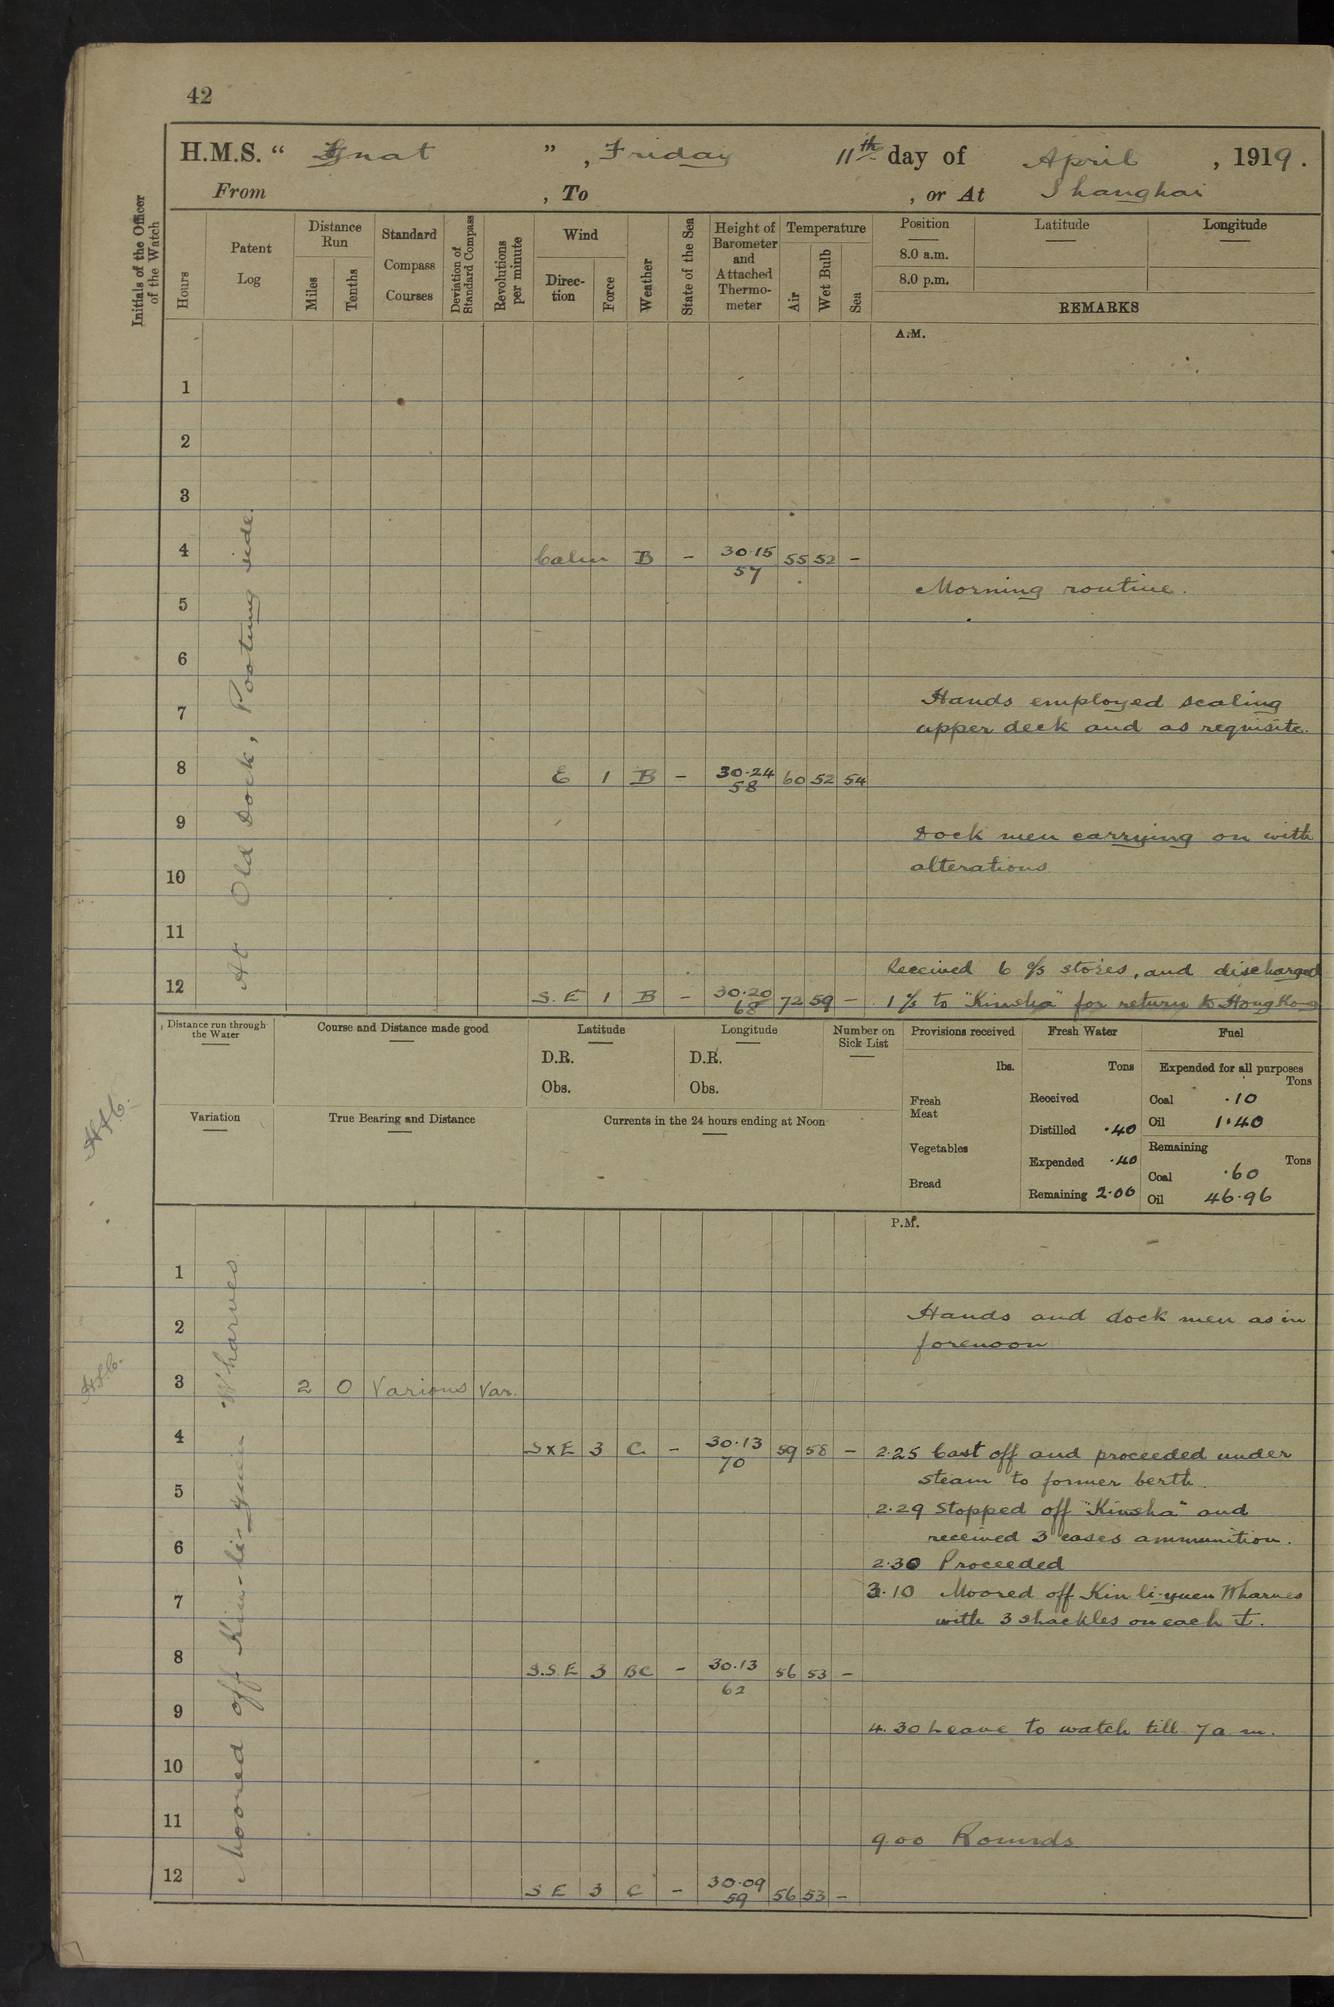 42
H.M.S. “ Gnat ” , Friday 11th day of April , 1919.
From , To , or At Shanghai
Initials of the Officer of the Watch
Hours
Patent Log
Distance Run
Miles
Tenths
Standard Compass Courses
Deviation of Standard Compass
Revolutions per minute
Wind
Direction
Force
Weather
State of the Sea
Height of Barometer and Attached Thermometer
Temperature
Air
Wet Bulb
Sea
Position
Latitude
Longitude
8.0 a.m.
8.0 p.m.
REMARKS
A.M.
At Old Dock, Pootung side.
1
2
3
4 Calm B - 30.15 57 55 52 -
Morning routine.
5
6
7 Hands employed scaling
upper deck and as requisite.
8 E 1 B - 30.24 58 60 52 54
9 Dock men carrying on with
alterations
10
11
Received 6 c/s stores, and discharged
12 S.E 1 B - 30.20 68 72 59 - 1 c/s to "Kinsha" for return to Hong Kong
Distance run through the Water
Course and Distance made good
Latitude
D.R.
Obs.
Longitude
D.R.
Obs.
Number on Sick List
Provisions received
lbs.
Fresh Meat
Vegetables
Bread
Fresh Water
Tons
Received
Distilled .40
Expended .40
Remaining 2.00
Fuel
Expended for all purposes
Tons
Coal .10
Oil 1.40
Remaining
Tons
Coal .60
Oil 46.96
Variation
True Bearing and Distance
Currents in the 24 hours ending at Noon
P.M.
Moored off Kin-li-yuen Wharves
1
2 Hands and dock men as in
forenoon
3 2 0 Various Var.
4 SxE 3 C. - 30.13 70 59 58 - 2.25 Cast off and proceeded under
steam to former berth.
5 2.29 Stopped off "Kinsha" and
received 3 cases ammunition.
6 2.30 Proceeded
7 3.10 Moored off Kin li-yuen Wharves
with 3 shackles on each ⚓.
8 S.S.E 3 BC - 30.13 62 56 53 -
9 4.30 Leave to watch till 7 a.m.
10
11 9.00 Rounds
12 S E 3 C - 30.09 59 56 53 -